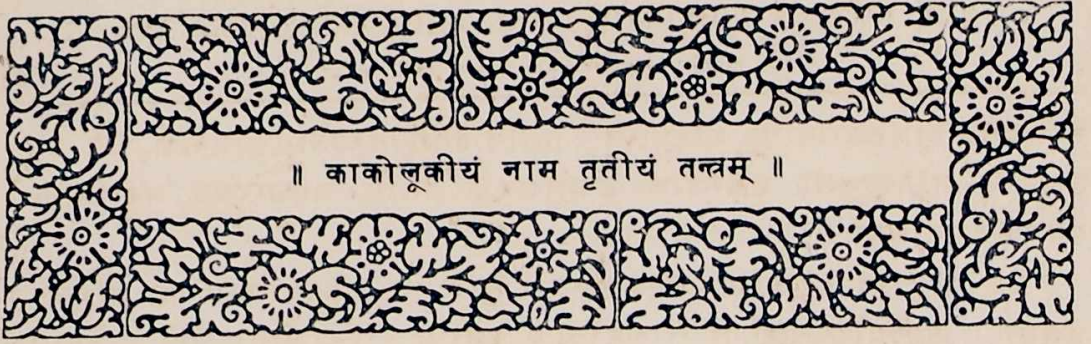 ॥ काकोलूकीयं नाम तृतीयं तन्त्रम् ॥